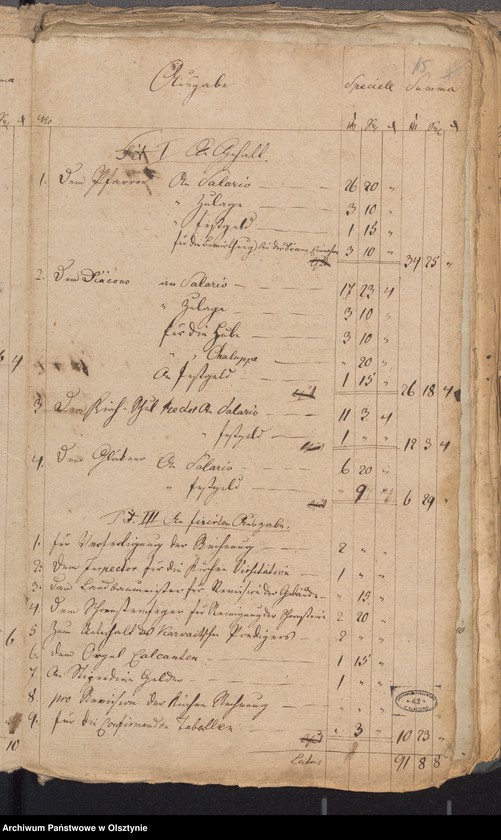 15
Ausgabe Speciele Summa
No
Tit I An Gehalt.
1. Dem Pfarrer An Salario — 26 20 "
" Zulage — 3 10 "
" Festgeld — 1 15 "
für die 3 10 " 34 25 "
2. Dem Diacono an Salario — 17 23 4
" Zulage — 3 10 "
für die Hube — 3 10 "
" " Chaluppe — " 20 "
An Festgeld — 1 15 " 26 18 4
3 Dem Kirch-Schul Rector An Salario — 11 3 4
" Festgeld — 1 " " 12 3 4
4. Dem Glöckner An Salario — 6 20 "
" Festgeld — " 9 " 6 29 "
Tit. III An fixirten Ausgabe.
1. für Verfertigung der Rechnung — 2 " "
2. Dem Inspector für die Kirchen Visitation — 1 " "
3. Dem Landbaumeister für Revision der Gebäude — " 15 "
4 Dem Schornsteinfeger für Reinigung der Schornsteine 2 20 "
5 Zum Unterhalt des Predigers — 2 " "
6. dem Orgel Calcanten — 1 15 "
7. An Stipendien Gelder — 1 " "
8. pro Revision der Kirchen Rechnung — " " "
9. für die Confirmanden Tabellen — " 3 " 10 23 "
Latus 91 8 8
6 4
6
10
62
Archiwum Państwowe w Olsztynie